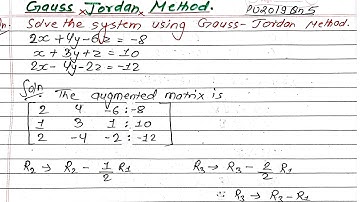 Gauss Jordan Method.
PU2019 Qn 5
Qn. Solve the system using Gauss-Jordan Method.
2x + 4y - 6z = -8
x + 3y + z = 10
2x - 4y - 2z = -12
Soln The augmented matrix is
2 4 -6 : -8
1 3 1 : 10
2 -4 -2 : -12
R₂ → R₂ - 1/2 R₁ R₃ → R₃ - 2/2 R₁
∴ R₃ → R₃ - R₁